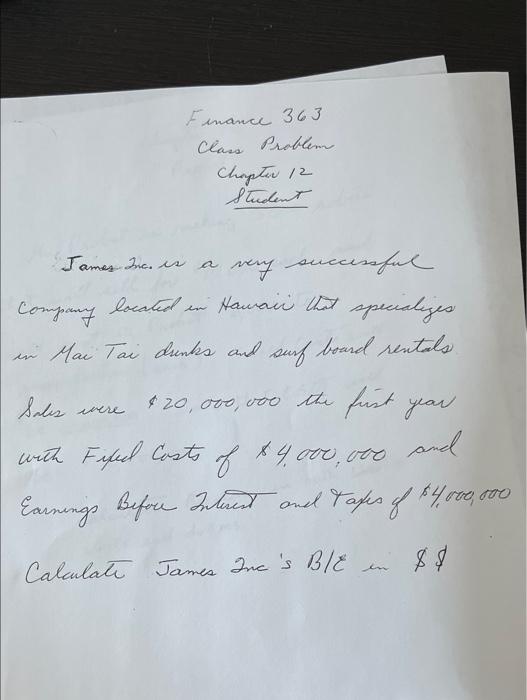 Finance 363
Class Problem
Chapter 12
Student
James Inc. is a very successful
Company located in Hawaii that specializes
in Mai Tai drinks and surf board rentals.
Sales were $20,000,000 the first year
with Fixed Costs of $4,000,000 and
Earnings Before Interest and Taxes of $4,000,000
Calculate James Inc's B/E in $$